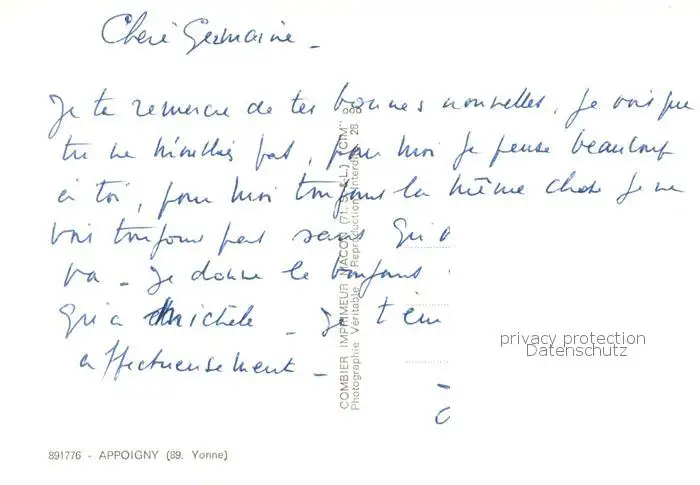 Chère Germaine -
Je te remercie de tes bonnes nouvelles, je vois que
tu ne m'oublies pas, pour moi je pense beaucoup
à toi, pour moi toujours la même chose je ne
vois toujours pas sans qui
va - je donne le bonjours
Qui a Michèle - Je t'em
affectueusement -
COMBIER IMPRIMEUR MACON (71. S.-&-L.) "CIM"
Photographie Véritable - Reproduction Interdite 28
privacy protection
Datenschutz
891776 - APPOIGNY (89. Yonne)